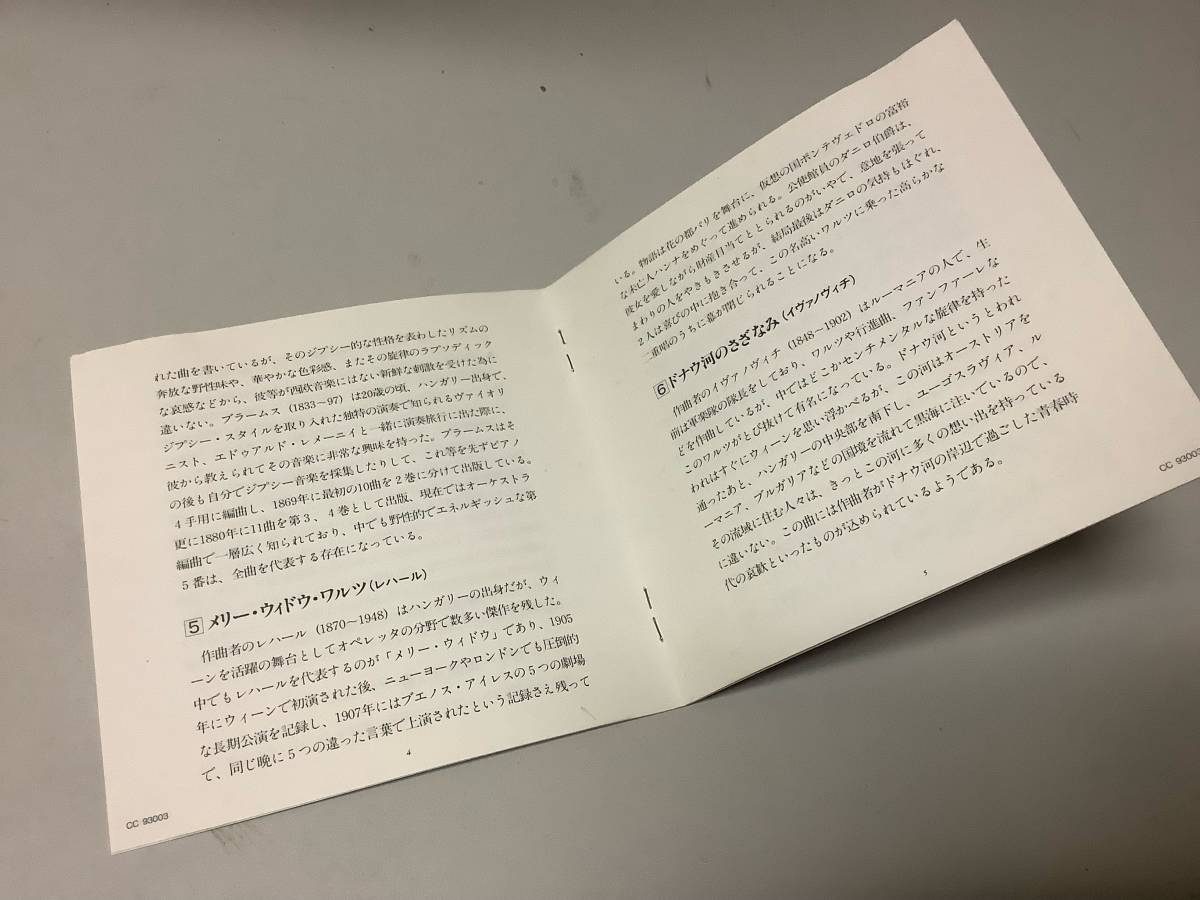 れた曲を書いているが、そのジプシー的な性格を表わしたリズムの
奔放な野性味や、華やかな色彩感、またその旋律のラプソディック
な哀感などから、彼等が西欧音楽にはない新鮮な刺激を受けた為に
違いない。ブラームス（1833〜97）は20歳の頃、ハンガリー出身で、
ジプシー・スタイルを取り入れた独特の演奏で知られるヴァイオリ
ニスト、エドゥアルド・レメーニイと一緒に演奏旅行に出た際に、
彼から教えられてその音楽に非常な興味を持った。ブラームスはそ
の後も自分でジプシー音楽を採集したりして、これ等を先ずピアノ
4手用に編曲し、1869年に最初の10曲を2巻に分けて出版している。
更に1880年に11曲を第3、4巻として出版、現在ではオーケストラ
編曲で一層広く知られており、中でも野性的でエネルギッシュな第
5番は、全曲を代表する存在になっている。
5 メリー・ウィドウ・ワルツ（レハール）
作曲者のレハール（1870〜1948）はハンガリーの出身だが、ウィ
ーンを活躍の舞台としてオペレッタの分野で数多い傑作を残した。
中でもレハールを代表するのが「メリー・ウィドウ」であり、1905
年にウィーンで初演された後、ニューヨークやロンドンでも圧倒的
な長期公演を記録し、1907年にはブエノス・アイレスの5つの劇場
で、同じ晩に5つの違った言葉で上演されたという記録さえ残って
4
CC 93003
いる。物語は花の都パリを舞台に、仮想の国ポンテヴェドロの富裕
な未亡人ハンナをめぐって進められる。公使館員のダニロ伯爵は、
彼女を愛しながら財産目当てととられるのがいやで、意地を張って
まわりの人をやきもきさせるが、結局最後はダニロの気持もほぐれ、
2人は喜びの中に抱き合って、この名高いワルツに乗った高らかな
二重唱のうちに幕が閉じられることになる。
6 ドナウ河のさざなみ（イヴァノヴィチ）
作曲者のイヴァノヴィチ（1848〜1902）はルーマニアの人で、生
前は軍楽隊の隊長をしており、ワルツや行進曲、ファンファーレな
どを作曲しているが、中ではどこかセンチメンタルな旋律を持った
このワルツがとび抜けて有名になっている。ドナウ河というとわれ
われはすぐにウィーンを思い浮かべるが、この河はオーストリアを
通ったあと、ハンガリーの中央部を南下し、ユーゴスラヴィア、ル
ーマニア、ブルガリアなどの国境を流れて黒海に注いでいるので、
その流域に住む人々は、きっとこの河に多くの想い出を持っている
に違いない。この曲には作曲者がドナウ河の岸辺で過ごした青春時
代の哀歓といったものが込められているようである。
5
CC 93003